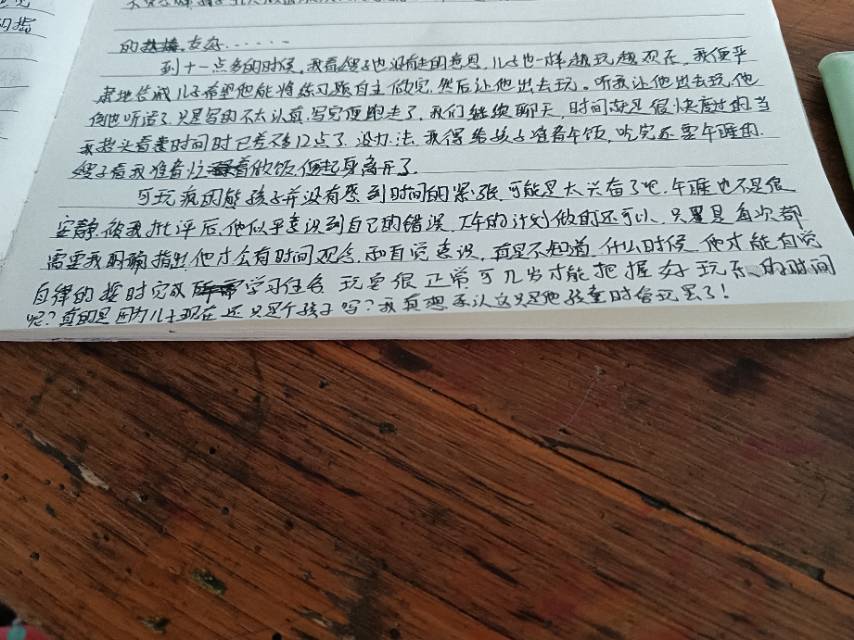 的指
的 友好......
到十一点多的时候,我看嫂子也没有走的意思,儿子也一样越玩越欢在,我便严
肃地告诫儿子希望他能将练习题自主做完,然后让他出去玩。听我让他出去玩,他
倒也听话了,只是写的不太认真,写完便跑走了,我们继续聊天,时间就是很快度过的当
我抬头看表时间时已差不多12点了,没办法,我得给孩子准备午饭,吃完还要午睡的.
嫂子看我准备忙着做饭,便起身离开了.
可玩疯的熊孩子并没有感到时间的紧张,可能是太兴奋了吧,午睡也不是很
安静,被我批评后,他似乎意识到自己的错误,下午的计划做的还可以,只是每次都
需要我明确指出,他才会有时间观念,和自觉意识,真是不知道,什么时候,他才能自觉
自律的按时完成学习任务 玩耍很正常可几岁才能把握好玩乐的时间
呢?真的是因为儿子现在还只是个孩子吗?我真想承认这只是他孩童时贪玩罢了!